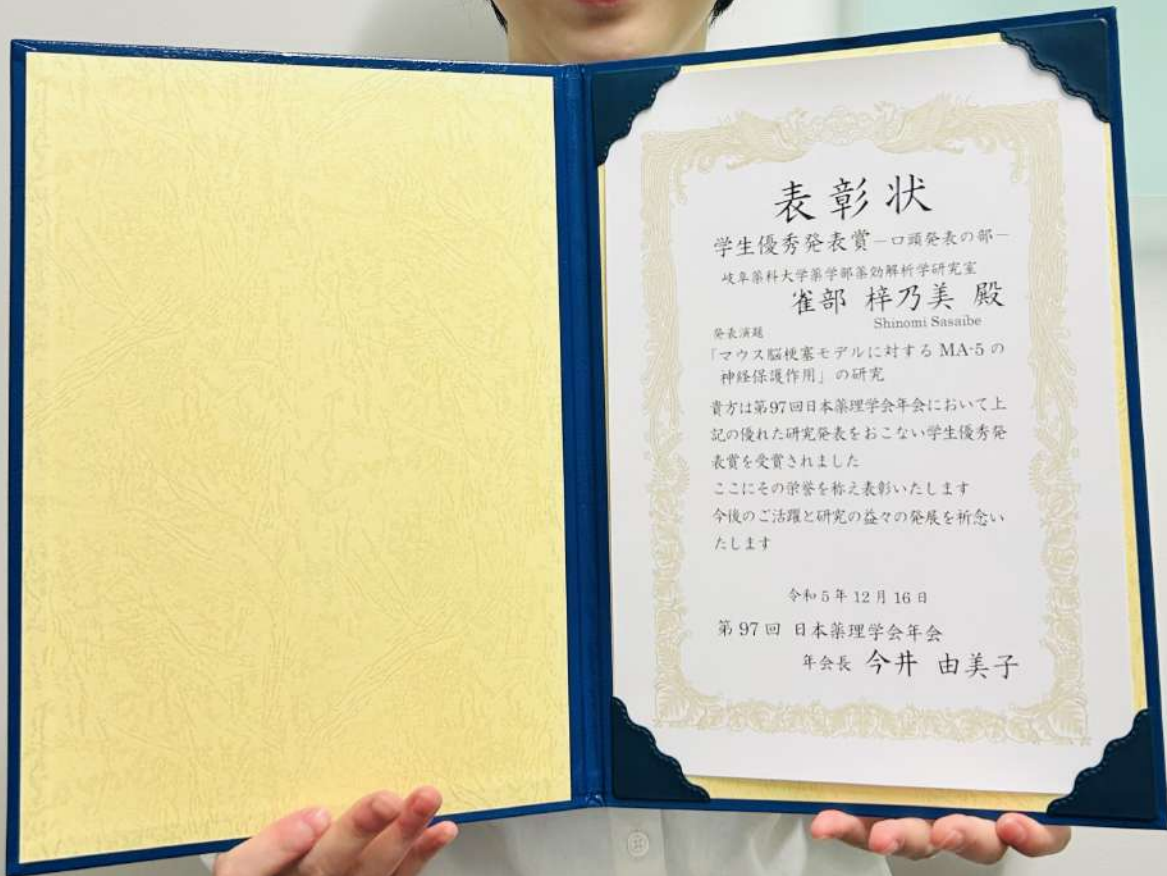 表彰状
学生優秀発表賞－口頭発表の部－
岐阜薬科大学薬学部薬効解析学研究室
雀部 梓乃美 殿
Shinomi Sasaibe
発表演題
「マウス脳梗塞モデルに対する MA-5 の
神経保護作用」の研究
貴方は第97回日本薬理学会年会において上
記の優れた研究発表をおこない学生優秀発
表賞を受賞されました
ここにその栄誉を称え表彰いたします
今後のご活躍と研究の益々の発展を祈念い
たします
令和5年12月16日
第97回 日本薬理学会年会
年会長 今井 由美子